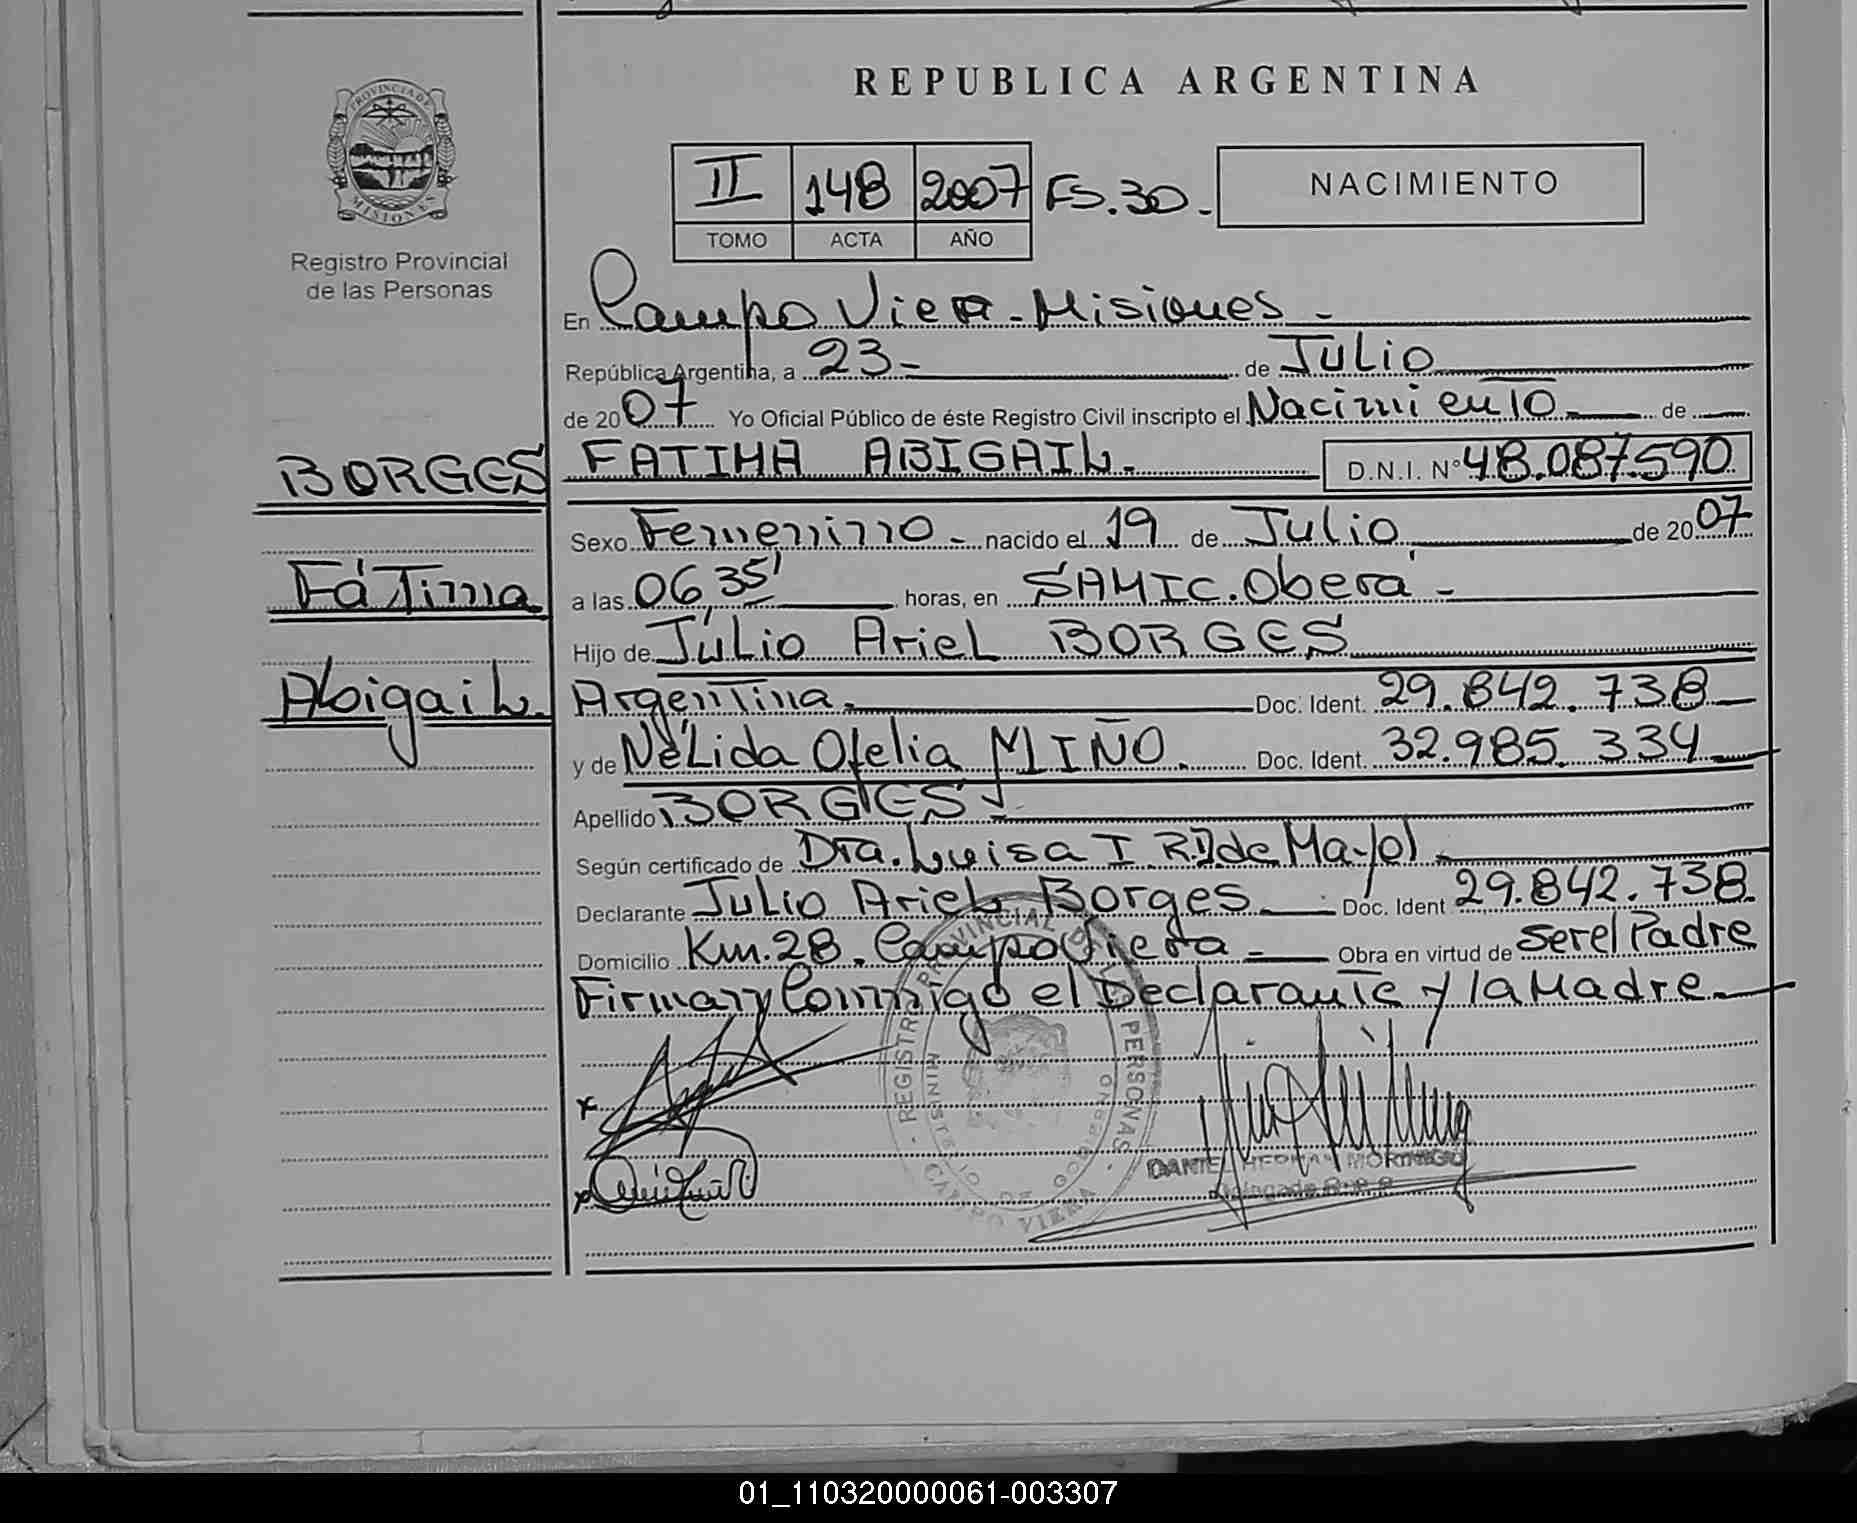 REPUBLICA ARGENTINA
PROVINCIA DE
MISIONES
Registro Provincial
de las Personas
II 148 2007 FS.30.-
TOMO ACTA AÑO
NACIMIENTO
En Campo Viera - Misiones -
República Argentina, a 23- de Julio
de 2007 Yo Oficial Público de éste Registro Civil inscripto el Nacimiento de
BORGES
Fátima
Abigail.
FATIMA ABIGAIL. D.N.I. N° 48.087.590
Sexo Femenino - nacido el 19 de Julio de 2007
a las 06,35' horas, en SAMIC. Oberá -
Hijo de Julio Ariel BORGES
Argentina. Doc. Ident. 29.842.738
y de Nélida Ofelia MIÑO. Doc. Ident. 32.985.334
Apellido BORGES.
Según certificado de Dra. Luisa I R. de Mayol.
Declarante Julio Ariel Borges Doc. Ident 29.842.738.
Domicilio Km.28. Campo Viera Obra en virtud de ser el Padre
Firman Conmigo el Declarante y la Madre
REGISTRO PROVINCIAL DE LAS PERSONAS
MINISTERIO DE GOBIERNO
CAMPO VIERA
x
x
DANIEL HERNAN MORINIGO
Delegado R.P.P.
01_110320000061-003307